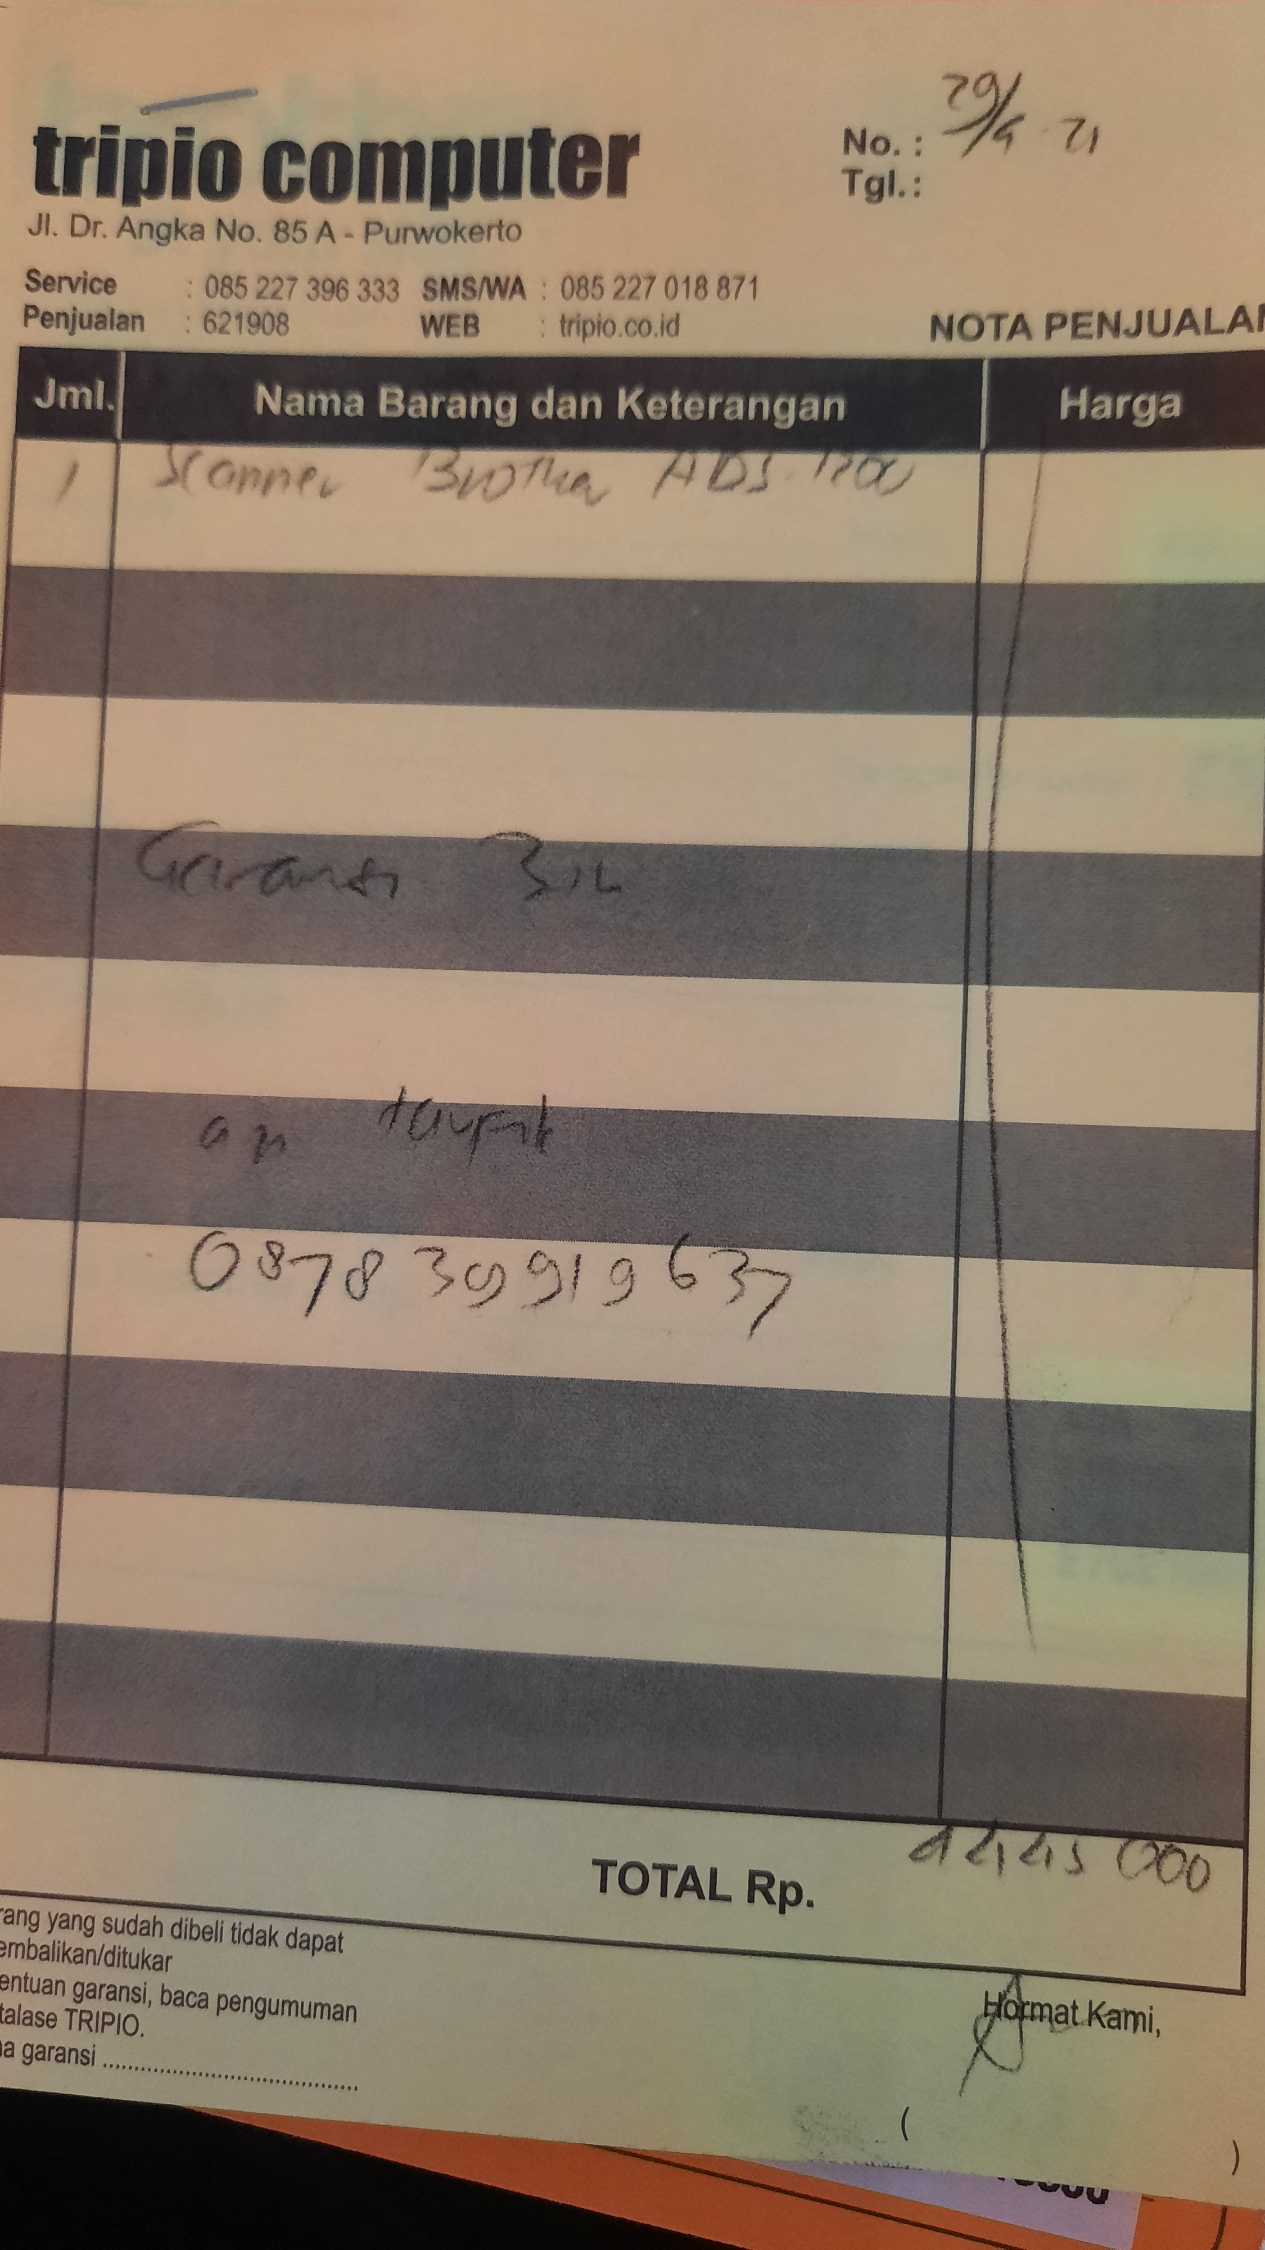 tripio computer
Jl. Dr. Angka No. 85 A - Purwokerto
No. : 29/4 21
Tgl. :
Service : 085 227 396 333 SMS/WA : 085 227 018 871
Penjualan : 621908 WEB : tripio.co.id
NOTA PENJUALAN
Jml. Nama Barang dan Keterangan Harga
1 Scanner Brother ADS.1200
Garansi 3
an taufik
087830919637
TOTAL Rp. 4445000
rang yang sudah dibeli tidak dapat
embalikan/ditukar
entuan garansi, baca pengumuman
talase TRIPIO.
a garansi ..........................................
Hormat Kami,
( )